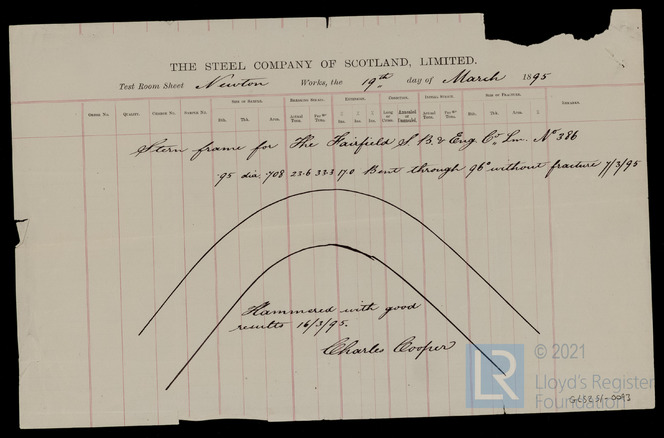 THE STEEL COMPANY OF SCOTLAND, LIMITED.
Test Room Sheet Newton Works, the 19th day of March 1895
SIZE OF SAMPLE. BREAKING STRAIN. EXTENSION. CONDITION. INITIAL STRAIN. SIZE OF FRACTURE.
ORDER No. QUALITY. CHARGE No. SAMPLE No. Bth. Thk. Area. Actual Tons. Per Sq" Tons. Ins. Ins. Ins. Long or Cross. Annealed or Unanneald. Actual Tons. Per Sq" Tons. Bth. Thk. Area. REMARKS.
Stern frame for The Fairfield S. B. & Eng. Co. Lm. No 386
.95 dia. .708 23.6 33.3 17.0 Bent through 96° without fracture 7/3/95
Hammered with good
results 16/3/95.
Charles Cooper
LR © 2021
Lloyd's Register
Foundation